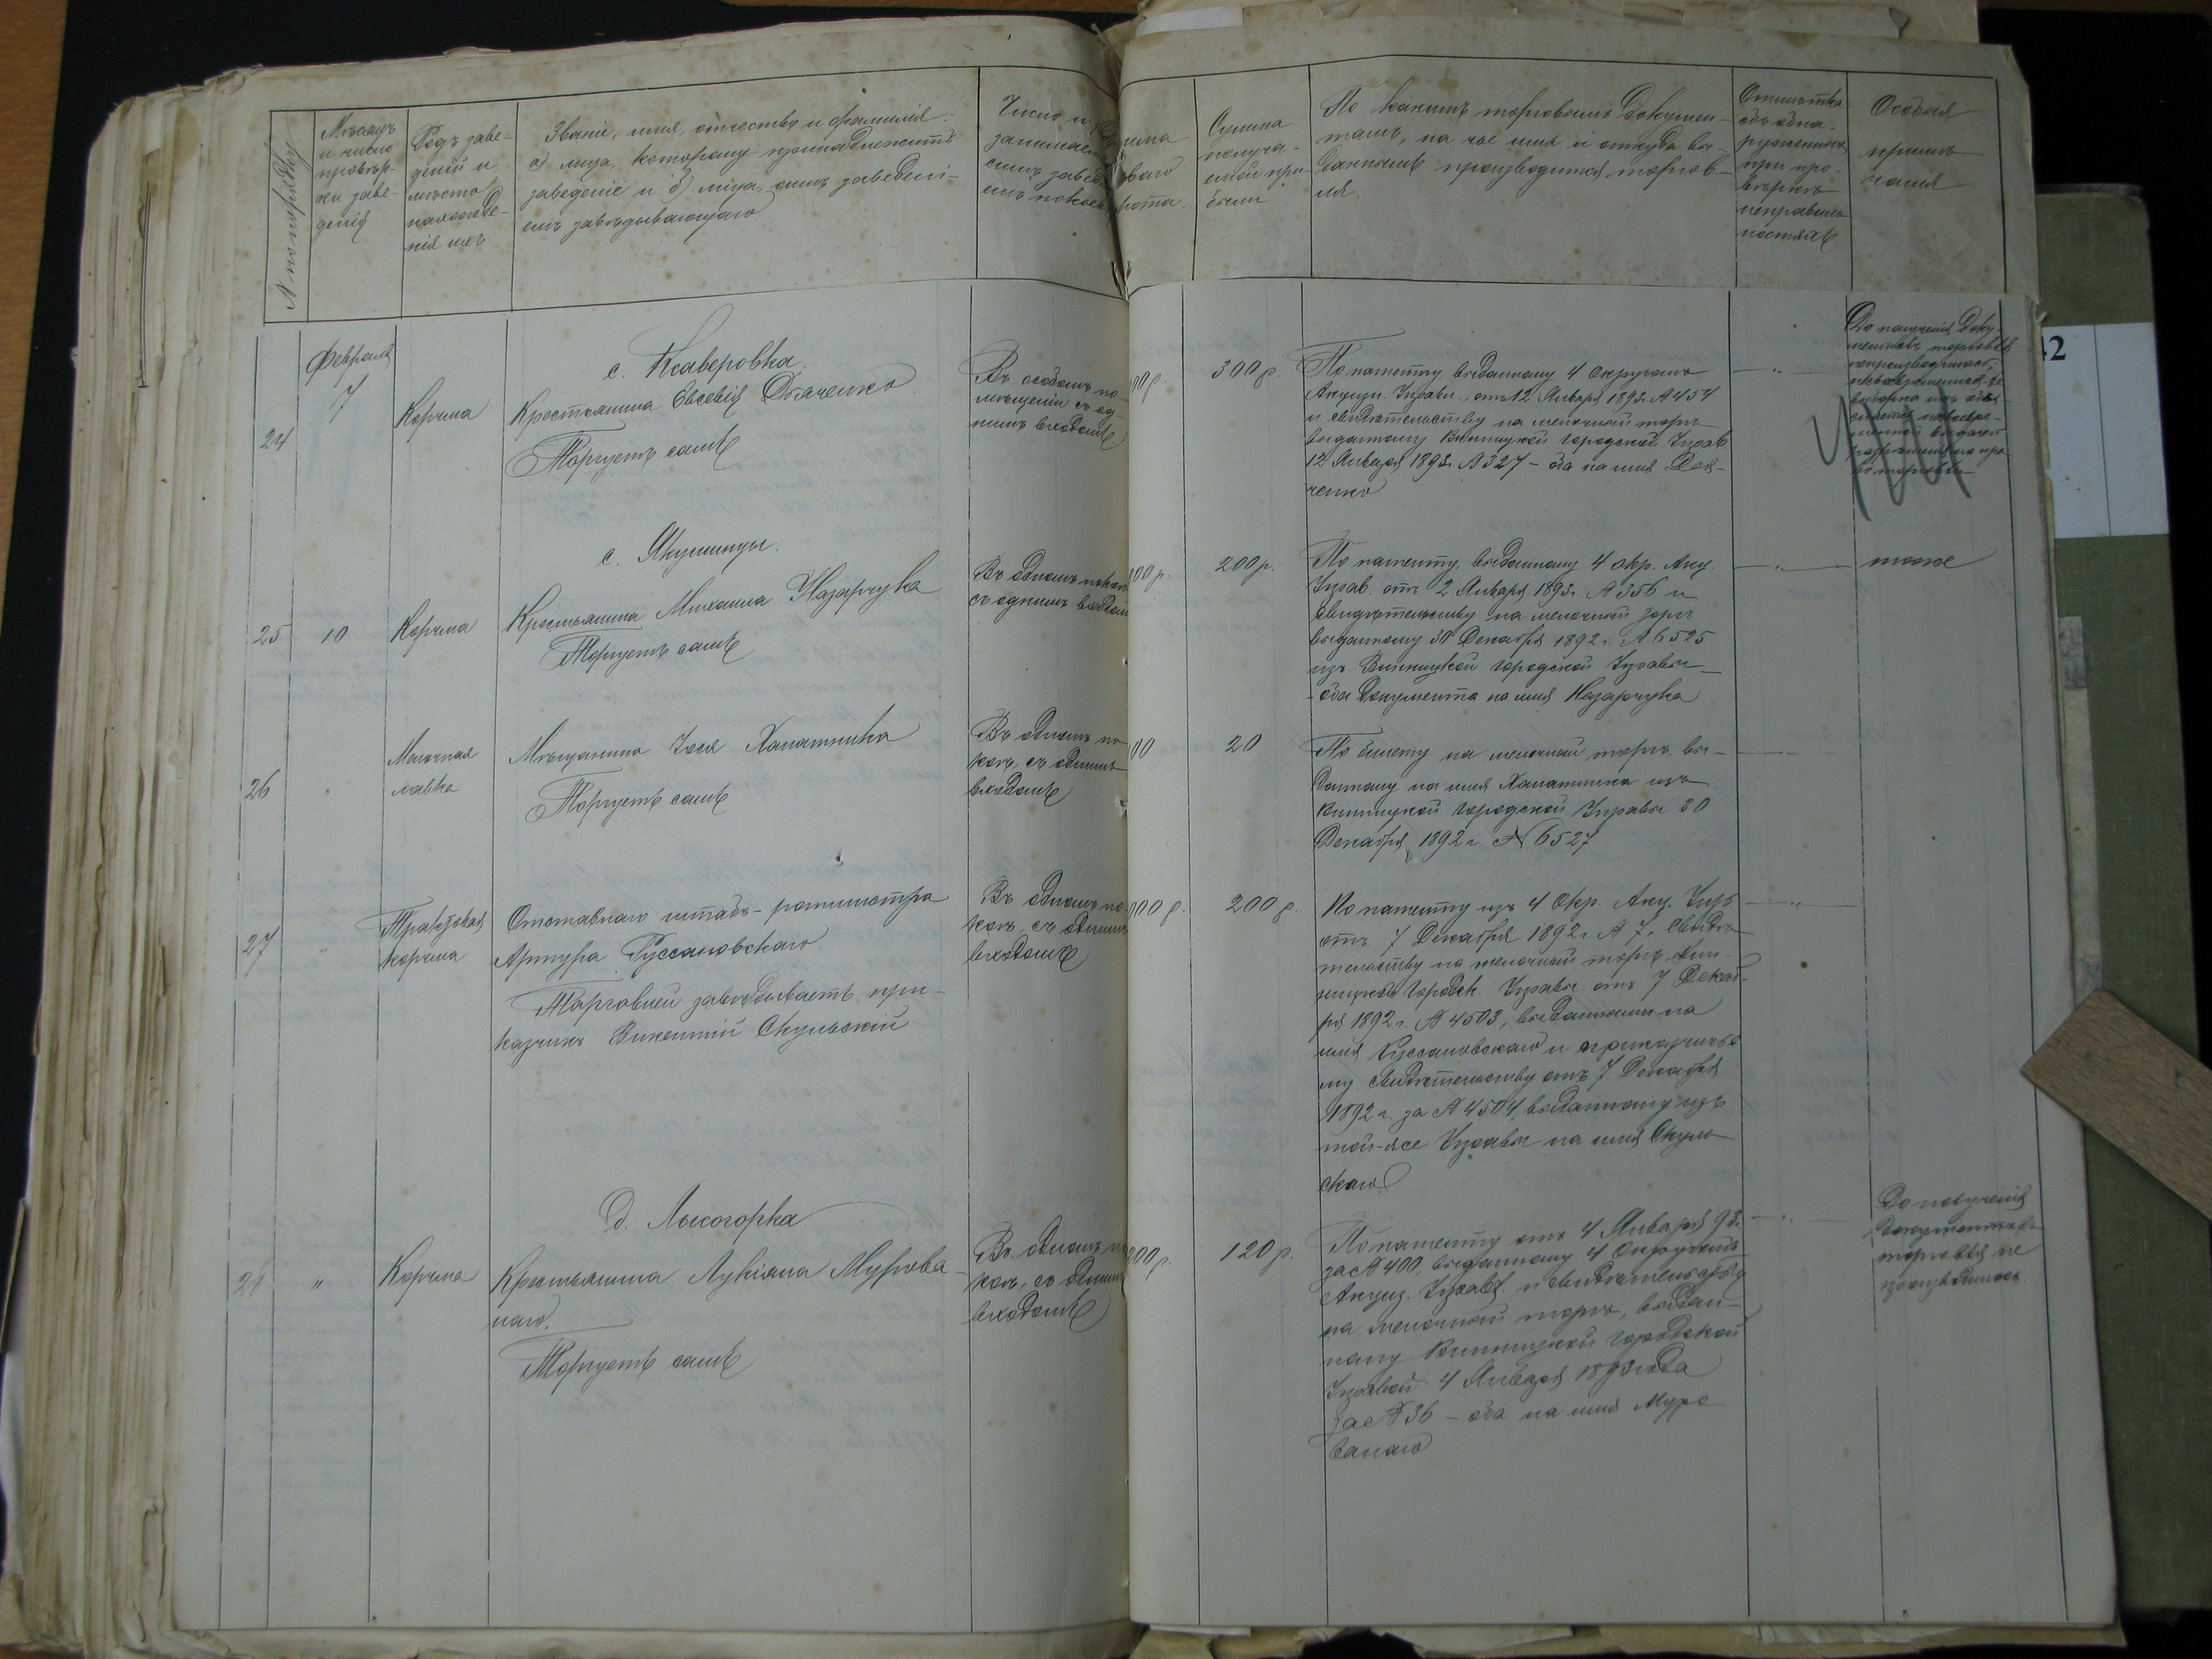 № по порядку
Мѣсяцъ
и число
провѣр-
ки заве-
денія
Родъ заве-
деній и
мѣсто
нахожде-
нія ихъ
Званіе, имя, отчество и фамилія:
а) лица, которому принадлежитъ
заведеніе и б) лица, симъ заведені-
емъ завѣдывающаго
Число и
занимаем
симъ завед
емъ покоев
ваго
рота.
Сумма
получа-
емой при-
были
По какимъ торговымъ докумен-
тамъ, на чье имя и откуда вы-
даннымъ производится торгов-
ля.
Отмѣтка
объ обна-
руженныхъ
при про-
вѣркѣ
неправиль
ностяхъ
Особыя
примѣ
чанія
с. Ксаверовка
24
Февраля
7
Корчма
Крестьянина Евсевія Дьяченко
Торгуетъ самъ
Въ особомъ по-
мѣщеніи съ од-
нимъ входомъ
00 р.
300 р.
По патенту выданному 4 Округомъ
Акцизн. Управл., отъ 12 Января 1893 № 454
и свидѣтельству на мелочный торгъ
выданному Винницкой Городской Управ
12 Января 1893 № 327 – оба на имя Дья-
ченко
До полученія доку-
ментовъ торговля
с. Якушинцы.
25
10
Корчма
Крестьянина Михаила Назарчука
Торгуетъ самъ
Въ одномъ покоѣ
съ однимъ входом
00 р.
200 р.
По патенту, выданному 4 окр. Акц.
Управ. отъ 2 Января 1893 г. № 356 и
свидѣтельству на мелочный торгъ
выданному 30 Декабря 1892 г. № 6525
изъ Винницкой Городской Управы
- оба документа на имя Назарчука
тоже
26
"
Мелочная
лавка
Мѣщанина Іося Халатника
Торгуетъ самъ
Въ одномъ по-
коѣ, съ однимъ
входомъ
00
20
По билету на мелочный торгъ вы-
данному на имя Халатника изъ
Винницкой Городской Управы 30
Декабря 1892 г. № 6527
27
"
Трактовая
корчма
Отставнаго штабъ-ротмистра
Артура Руссановскаго
Торговлей завѣдываетъ при-
казчикъ Викентій Скульскій
Въ одномъ по-
коѣ, съ однимъ
входомъ
000 р.
200 р.
По патенту изъ 4 Окр. Акц. Упр
отъ 7 Декабря 1892 г. № 7. Свидѣ-
тельству на мелочный торгъ Вин-
ницкой Городск. Управы отъ 7 Декаб-
ря 1892 г. № 4503, выданнымъ на
имя Руссановскаго и приказчичье
му свидѣтельству отъ 7 Декабря
1892 г. за № 4504, выданному изъ
той-же Управы на имя Скуль
скаго
д. Лысогорка
28
"
Корчма
Крестьянина Лукіана Мурова
наго.
Торгуетъ самъ
Въ одномъ по
коѣ, съ однимъ
входомъ
000 р.
120 р.
По патенту отъ 4 Января 93 г.
за № 400, выданному 4 Округомъ
Акциз. Управл. и свидѣтельству
на мелочный торгъ, выдан-
ному Винницкой Городской
Управой 4 Января 1893 года
за № 36 – оба на имя Муро
ванаго
До полученія
документовъ
торговля не
производилась
42